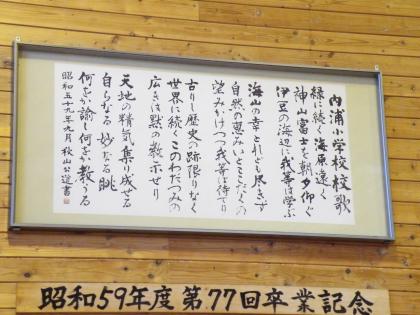 内浦小学校校歌
緑に続く海原遠く
神山富士を朝夕仰ぐ
伊豆の海辺に我等は学ぶ
海山の幸とれども尽きず
自然の恵みいとこしなへの
望みかけつつ我等は待てり
古りし歴史の跡限りなく
世界に続くこのわだつみの
広きは黙の教示せり
天地の精気集り成せる
自らなる妙なる眺
何をか諭し何をか教うる
昭和五十九年九月 秋山公道書
昭和59年度第77回卒業記念